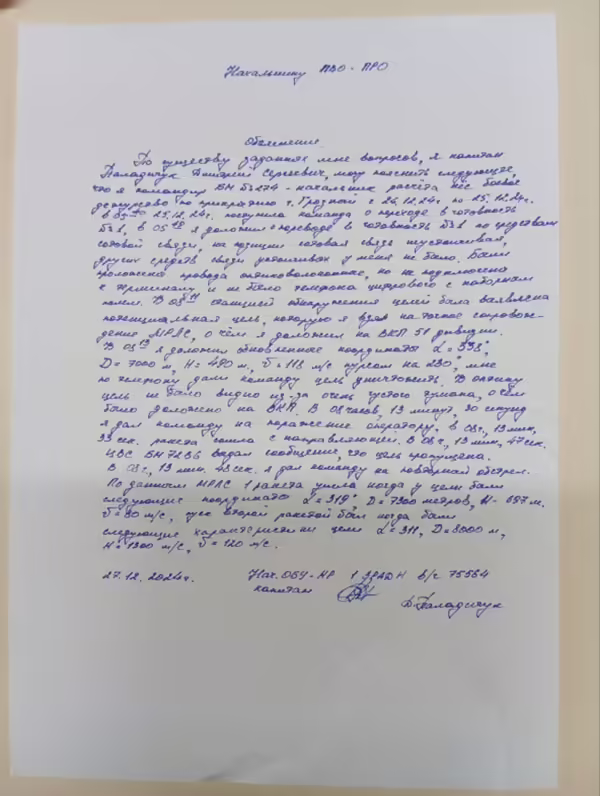 Начальнику ПВО-ПРО
Объяснение
По существу заданных мне вопросов, я капитан
Паладичук Дмитрий Сергеевич, могу пояснить следующее,
что я командир БМ 72 - начальник расчёта нёс боевое
дежурство по прикрытию г. Грозный с 24.12.24г. по 25.12.24г.
в 25.12.24г. поступила команда о переходе в готовность
№1, в 05 я доложил о переводе в готовность №1 по средствам
сотовой связи, на позиции сотовая связь неустойчивая,
других средств связи у меня не было. Были
проложены провода оптиковолоконные, но не подключены
к терминалу и не было телефона цифрового с наборным
полем. В 08 11 станцией обнаружения целей была выявлена
потенциальная цель, которую я взял на точное сопровож-
дение МРЛС, о чём я доложил на ВКП 51 дивизии.
В 08 13 я доложил обновленные координаты α = 338°,
D = 7000 м, H = 480 м, V = 113 м/с курсом на 230°, мне
по телефону дали команду цель уничтожить. В оптику
цель не было видно из-за очень густого тумана, о чём
было доложено на ВКП. В 08 часов, 13 минут, 30 секунд
я дал команду на поражение оператору, в 08ч, 13 мин,
33 сек. ракета сошла с направляющей. В 08ч, 13 мин, 47 сек.
ЦВС БМ 72В6 выдал сообщение, что цель пропущена.
В 08 ч, 13 мин. 48 сек. я дал команду на повторный обстрел.
По данным МРЛС 1 ракета ушла когда у цели были
следующие координаты α = 319°, D = 7300 метров, H - м.
V = 90 м/с, пуск второй ракетой был когда были
следующие характеристики цели α = 311, D = 8000 м,
H = 1300 м/с, V = 120 м/с.
27.12.2024г. Нач. ОБУ-НР 1 ЗРАДН в/ч 75564
капитан
Д. Паладичук